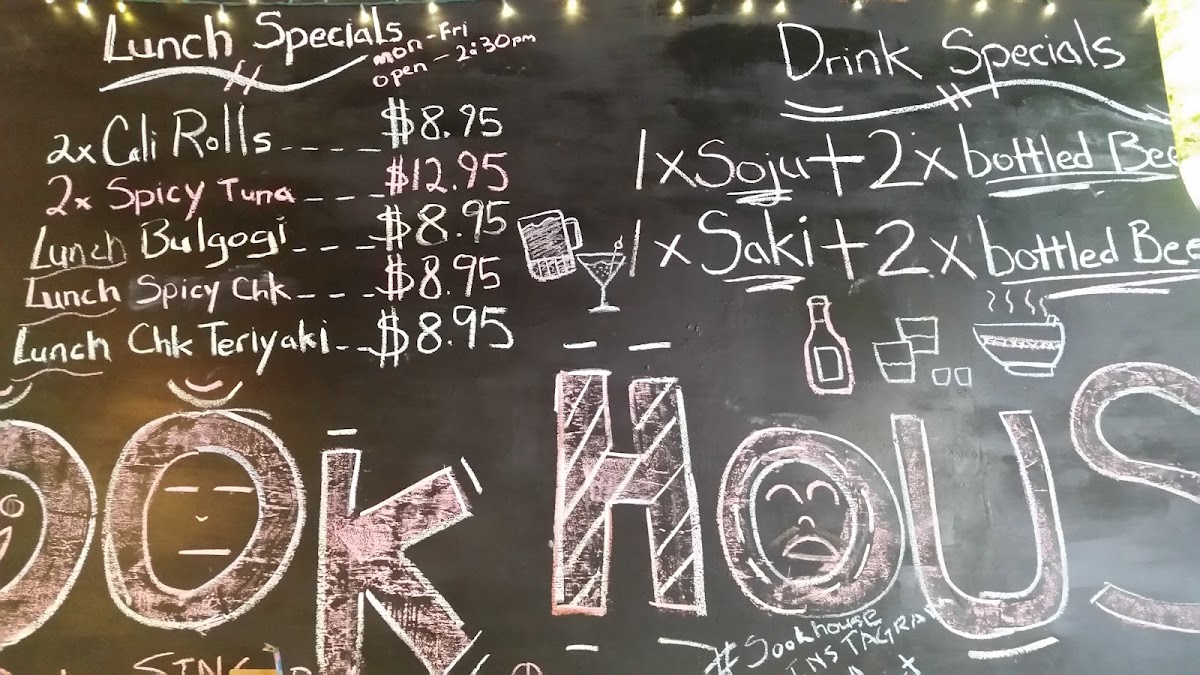 Lunch Specials
mon - Fri
open - 2:30pm
2x Cali Rolls---- $8.95
2x Spicy Tuna --- $12.95
Lunch Bulgogi --- $8.95
Lunch Spicy Chk --- $8.95
Lunch Chk Teriyaki -- $8.95
Drink Specials
1x Soju + 2x bottled Bee
1x Saki + 2x bottled Bee
OOK HOUS
#Sookhouse
INSTAGRA